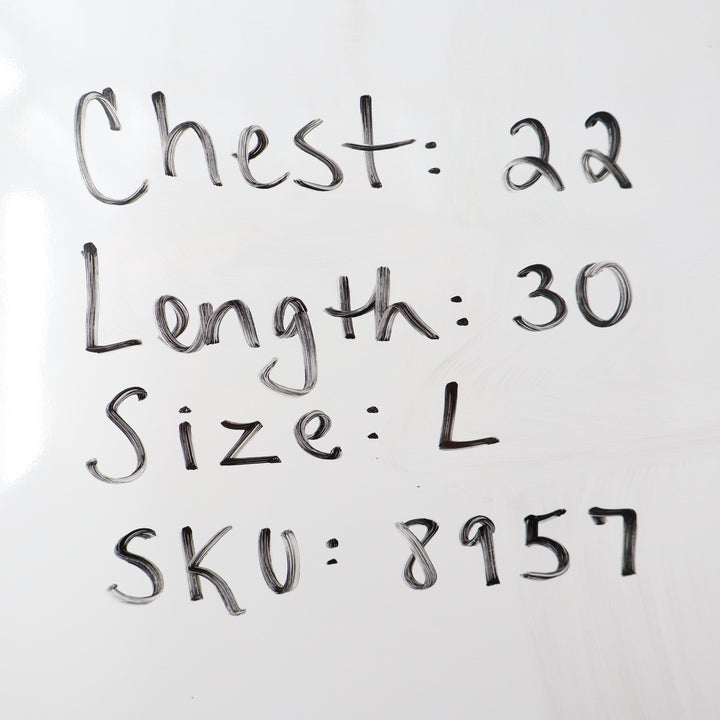 Chest: 22
Length: 30
Size: L
SKU: 8957